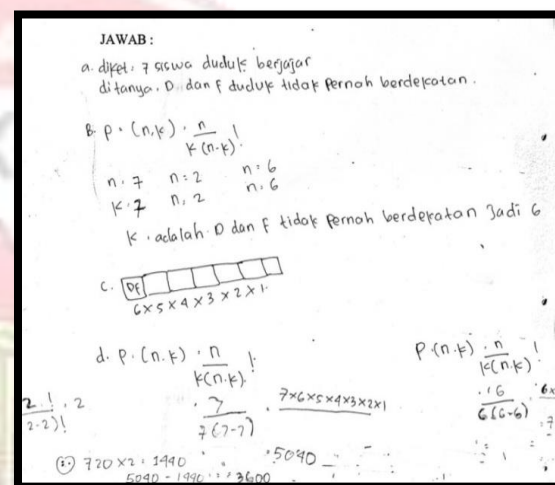 JAWAB :
a. diket : 7 siswa duduk berjajar
ditanya . D dan F duduk tidak pernah berdekatan .
B. P . (n,k) . n / k (n-k) !
n . 7 n = 2 n = 6
k . 7 n , 2 n . 6
k . adalah D dan F tidak pernah berdekatan Jadi 6
C. DF
6 x 5 x 4 x 3 x 2 x 1
d. P . (n.k) . n / k(n.k) ! P . (n.k) . n / k(n.k) !
2 . ! . 2 / 2-2)! . 7 / 7 (7-7) . 7x6x5x4x3x2x1 . 6 / 6 (6-6) 6x
720 x 2 . 1440 . 5040
5040 - 1440 3600